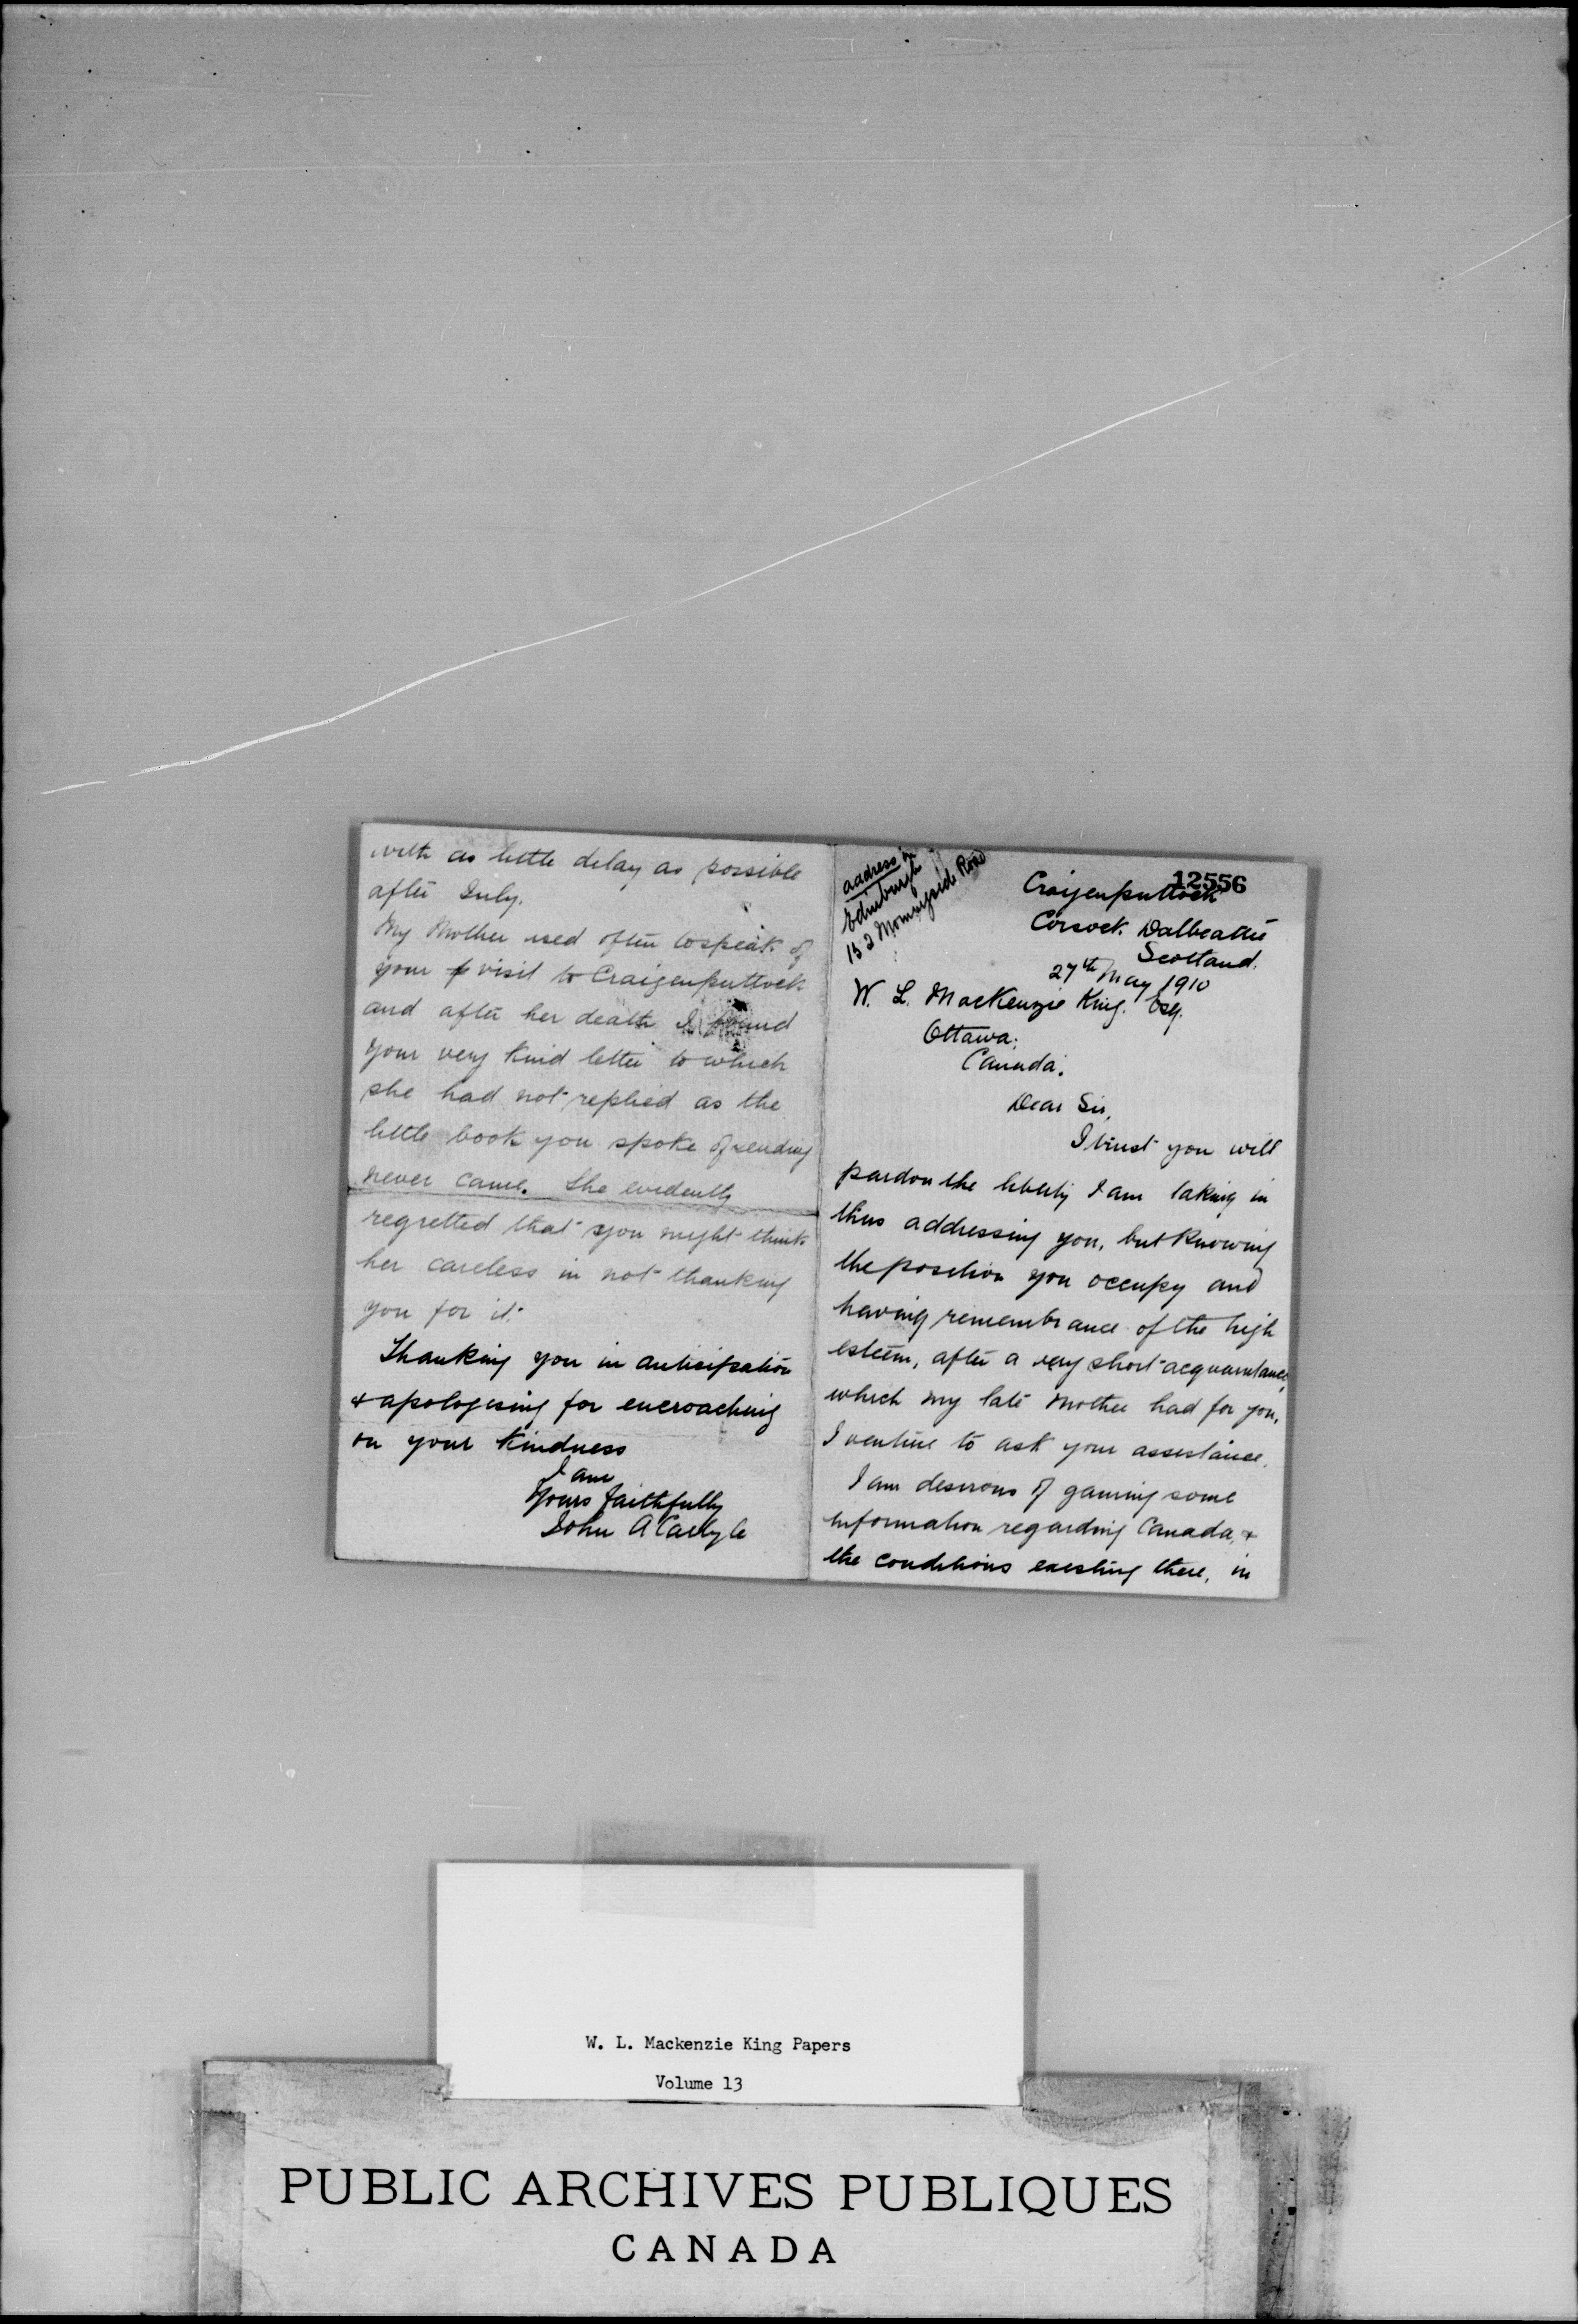 with as little delay as possible
after July.
My Mother used often to speak of
your visit to Craigenputtock
and after her death I found
your very kind letter to which
she had not replied as the
little book you spoke of sending
never came. She evidently
regretted that you might think
her careless in not thanking
you for it.
Thanking you in anticipation
& apologising for encroaching
on your kindness
I am
Yours faithfully
John A Carlyle
address in
Edinburgh
152 Morningside Road
12556
Craigenputtock
Corsock. Dalbeattie
Scotland.
27th May 1910
W. L. MacKenzie King. Esq.
Ottawa.
Canada.
Dear Sir,
I trust you will
pardon the liberty I am taking in
thus addressing you, but knowing
the position you occupy and
having remembrance of the high
esteem, after a very short acquaintance,
which my late Mother had for you,
I venture to ask your assistance.
I am desirous of gaining some
information regarding Canada, &
the conditions existing there, in
W. L. Mackenzie King Papers
Volume 13
PUBLIC ARCHIVES PUBLIQUES
CANADA